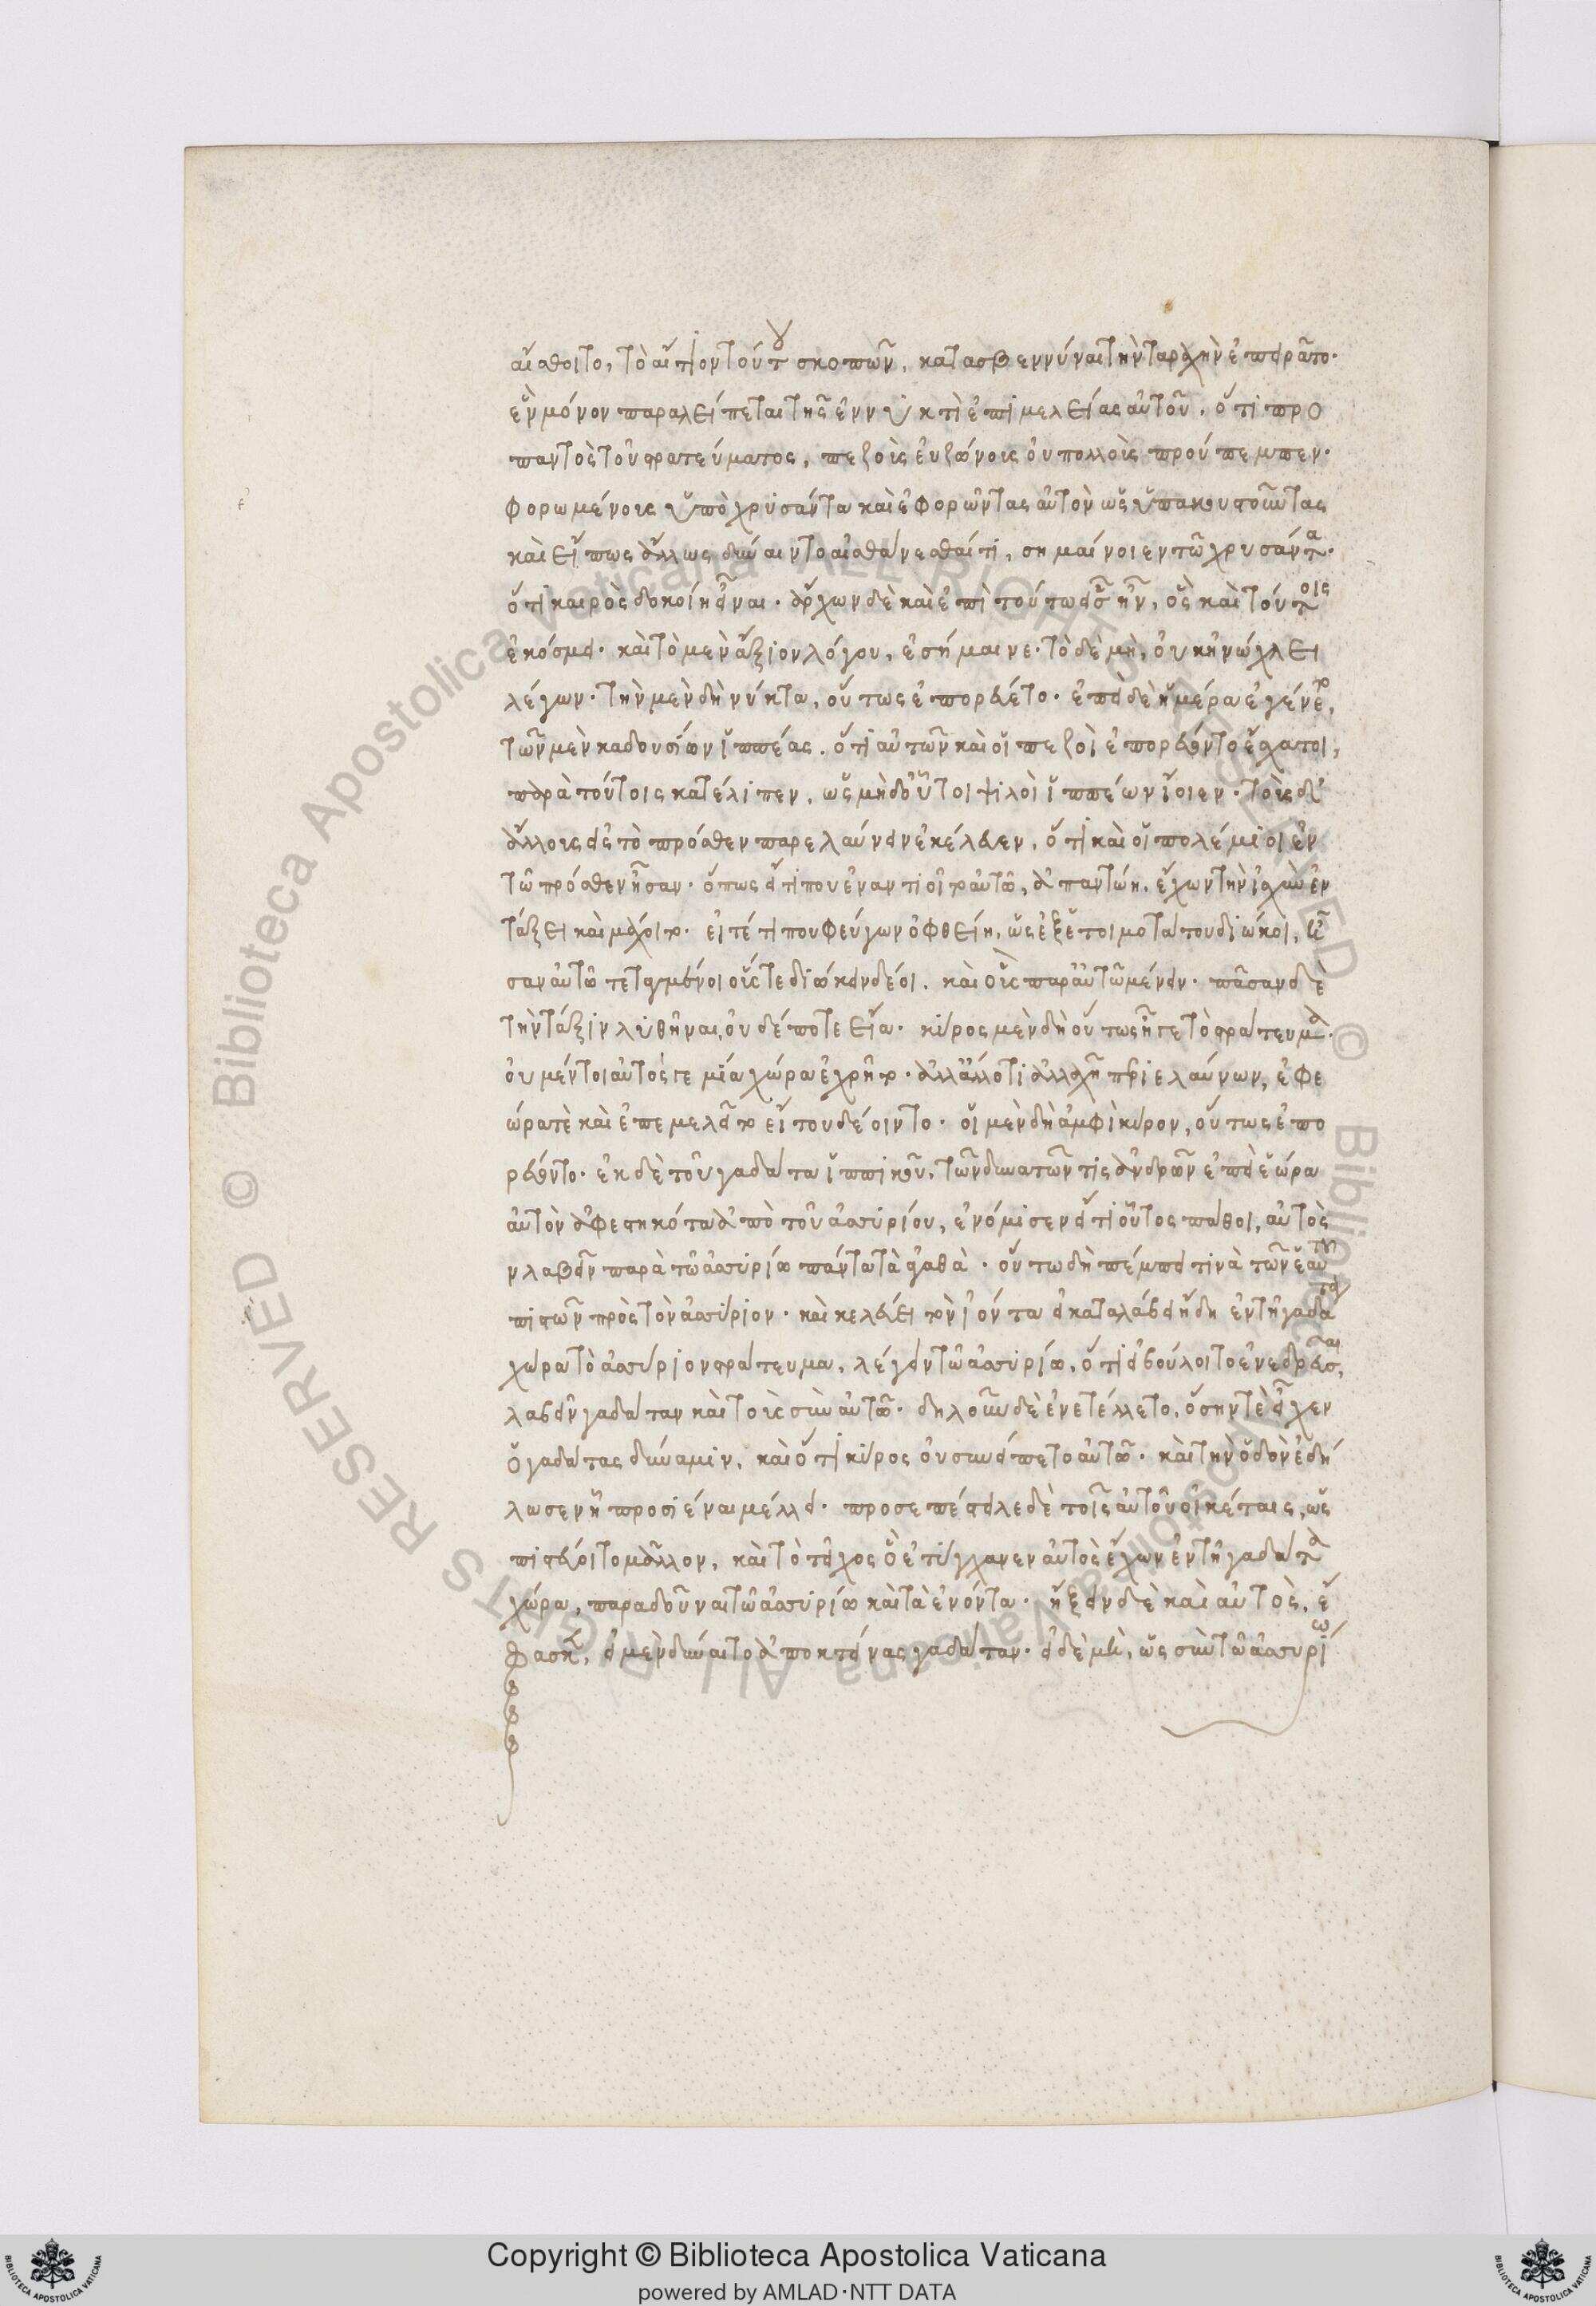 αἴσθοιτο, τὸ αἴτιον τούτου σκοπῶν, κατασβεννύναι τὴν ταραχὴν ἐπειρᾶτο·
ἓν μόνον παραλείπεται τῆς ἐν νυκτὶ ἐπιμελείας αὐτοῦ, ὅτι προ
παντὸς τοῦ στρατεύματος, πεζοῖς εὐζώνοις οὐ πολλοῖς προύπεμπεν·
φορωμένοις ὑπὸ χρυσάντα καὶ ἐφορῶντας αὐτὸν ὡς ὑπακουστοῦντας
καὶ εἴ πως ἄλλως δύναιντο αἰσθάνεσθαί τι, σημαίνοιεν τῶ χρυσάντα·
ὅτι καιρὸς δοκοίη εἶναι· ἄρχων δὲ καὶ ἐπὶ τούτοις ἦν, ὃς καὶ τούτοις
ἐκόσμει· καὶ τὸ μὲν ἄξιον λόγου, ἐσήμαινε· τὸ δὲ μὴ, οὐκ ἠνώχλει
λέγων· τὴν μὲν δὴ νύκτα, οὕτως ἐπορεύετο· ἐπεὶ δὲ ἡμέρα ἐγένετο,
τῶν μὲν καδουσίων ἱππέας, ὅτι αὐτῶν καὶ οἱ πεζοὶ ἐπορεύοντο ἔσχατοι,
παρὰ τούτοις κατέλιπεν, ὡς μὴ δ' οὗτοι ψιλοὶ ἱππέων ἴοιεν· τοὺς δ'
ἄλλους εἰς τὸ πρόσθεν παρελαύνειν ἐκέλευεν, ὅτι καὶ οἱ πολέμιοι ἐν
τῶ πρόσθεν ἦσαν· ὅπως εἴ τί που ἐναντιοῖτο αὐτῶ, ἀπαντώη, ἔχων τὴν ἰσχὺν ἐν
τάξει καὶ μάχοιτο· εἴ τέ τί που φεῦγον ὀφθείη, ὡς ἐξ ἑτοιμοτάτου διώκοι, ἦ
σαν αὐτῶ τεταγμένοι οὕς τε διώκειν δέοι, καὶ οὓς παρ' αὐτῶ μένειν· πᾶσαν δὲ
τὴν τάξιν λυθῆναι, οὐδέποτε εἴα· κῦρος μὲν δὴ οὕτως ἦγε τὸ στράτευμα·
οὐ μέντοι αὐτός γε μία χώρα ἐχρῆτο· ἀλλ' ἄλλοτι ἀλλαχῆ περιελαύνων, ἐφε
ώρα τὲ καὶ ἐπεμελεῖτο εἴ του δέοιντο· οἱ μὲν δὴ ἀμφὶ κῦρον, οὕτως ἐπο
ρεύοντο· ἐκ δὲ τοῦ γαδάτα ἱππικοῦ, τῶν δυνατῶν τις ἀνδρῶν ἐπεὶ ἑώρα
αὐτὸν ἀφεστηκότα ἀπὸ τοῦ ἀσσυρίου, ἐνόμισεν εἴ τι οὗτος πάθοι, αὐτὸς
ν λαβεῖν παρὰ τῶ ἀσσυρίω πάντα τὰ ἀγαθὰ· οὕτω δὴ πέμπει τινὰ τῶν ἑαυτοῦ
πιστῶν πρὸς τὸν ἀσσύριον· καὶ κελεύει τὸν ἰόντα εἰ καταλάβοι ἤδη ἐν τῆ γαδάτα
χώρα τὸ ἀσσύριον στράτευμα, λέγειν τῶ ἀσσυρίω, ὅτι εἰ βούλοιτο ἐνεδρεῦσαι,
λαβεῖν γαδάταν καὶ τοὺς σὺν αὐτῶ· δηλοῦν δὲ ἐνετέλλετο, ὅσην τὲ εἶχεν
ὁ γαδάτας δύναμιν, καὶ ὅτι κῦρος οὐ συνείπετο αὐτῶ· καὶ τὴν ὁδὸν ἐδή
λωσεν ἧ προσιέναι μέλλει· προσεπέστειλε δὲ τοῖς αὐτοῦ οἰκέταις, ὡς
πιστεύοιτο μᾶλλον, καὶ τὸ τεῖχος ὃ ἐτύγχανεν αὐτὸς ἔχων ἐν τῆ γαδάτα
χώρα, παραδοῦναι τῶ ἀσσυρίω καὶ τὰ ἐνόντα· ἥξειν δὲ καὶ αὐτὸς, ἔ
φασκεν, εἰ μὲν δύναιτο ἀποκτείνας γαδάταν· εἰ δὲ μὴ, ὡς σὺν τῶ ἀσσυρίω
Copyright © Biblioteca Apostolica Vaticana
powered by AMLAD·NTT DATA